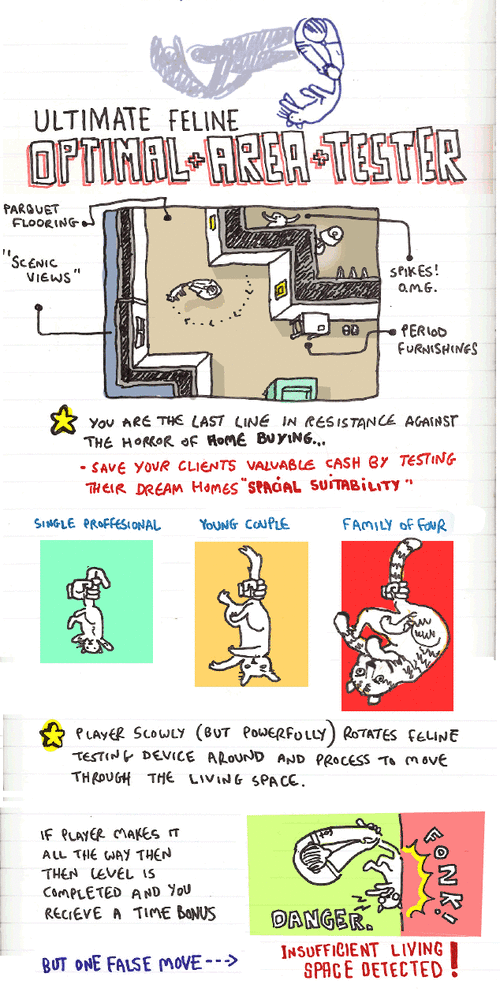 ULTIMATE FELINE
OPTIMAL+AREA+TESTER
PARQUET
FLOORING
"SCENIC
VIEWS"
SPIKES!
O.M.G.
PERIOD
FURNISHINGS
YOU ARE THE LAST LINE IN RESISTANCE AGAINST
THE HORROR OF HOME BUYING...
- SAVE YOUR CLIENTS VALUABLE CASH BY TESTING
THEIR DREAM HOMES "SPACIAL SUITABILITY"
SINGLE PROFFESIONAL
YOUNG COUPLE
FAMILY OF FOUR
PLAYER SLOWLY (BUT POWERFULLY) ROTATES FELINE
TESTING DEVICE AROUND AND PROCESS TO MOVE
THROUGH THE LIVING SPACE.
IF PLAYER MAKES IT
ALL THE WAY THEN
THEN LEVEL IS
COMPLETED AND YOU
RECIEVE A TIME BONUS
FONK!
DANGER.
BUT ONE FALSE MOVE --->
INSUFFICIENT LIVING
SPACE DETECTED!